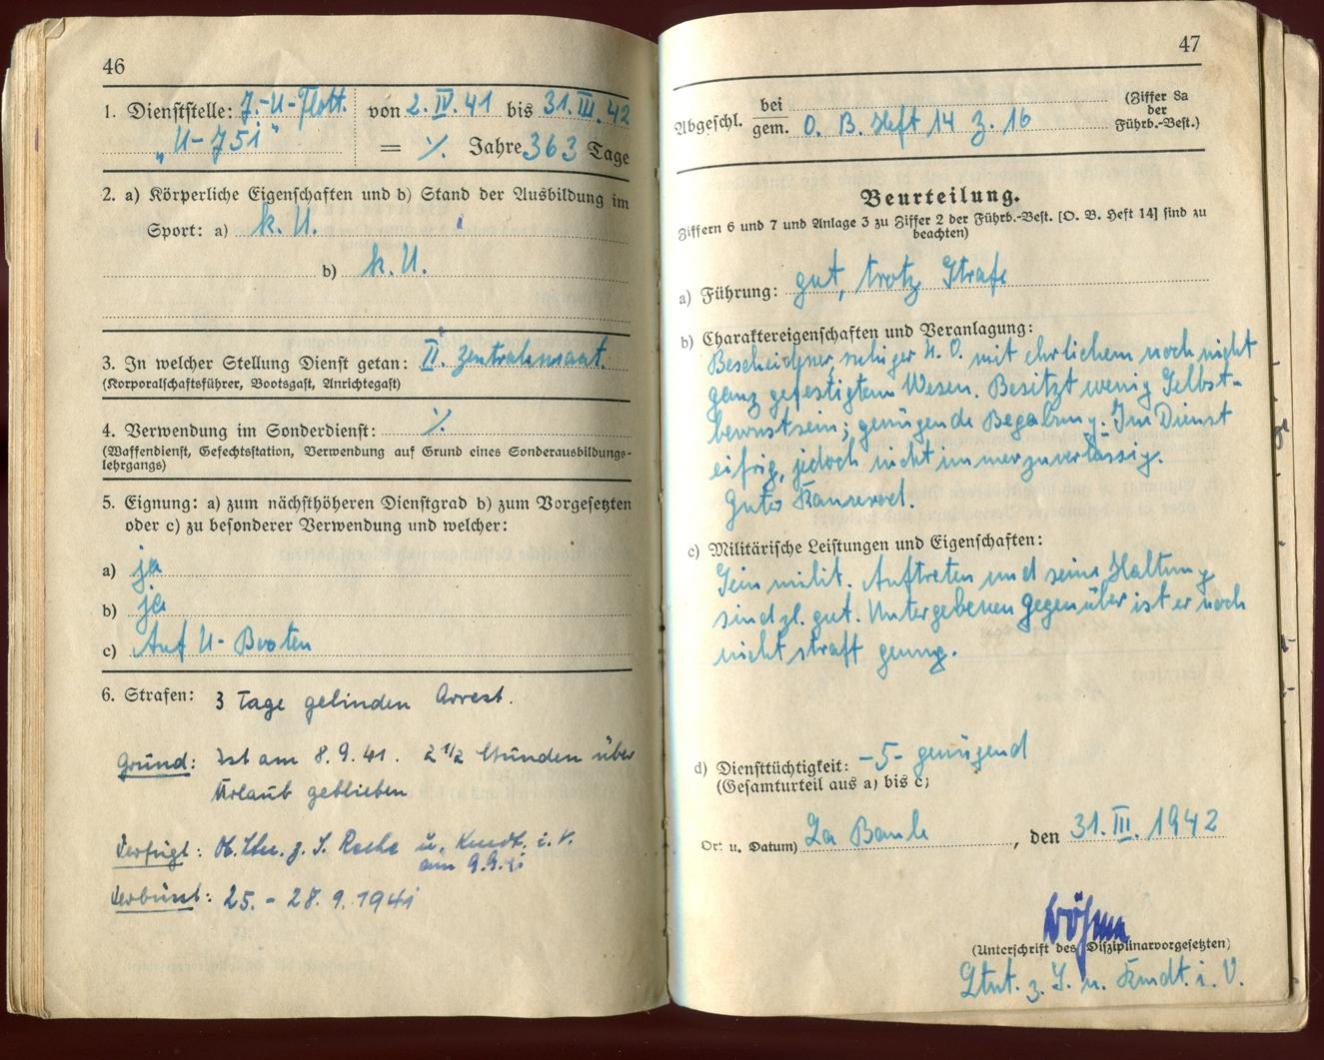 46
1. Dienststelle: 7.-U-Flott. von 2.IV.41 bis 31.III.42
„U-751" = ٪ Jahre 363 Tage
2. a) Körperliche Eigenschaften und b) Stand der Ausbildung im
Sport: a) k. U.
b) k. U.
3. In welcher Stellung Dienst getan: II. Zentralemaat.
(Korporalschaftsführer, Bootsgast, Anrichtegast)
4. Verwendung im Sonderdienst: ٪
(Waffendienst, Gefechtsstation, Verwendung auf Grund eines Sonderausbildungs-
lehrgangs)
5. Eignung: a) zum nächsthöheren Dienstgrad b) zum Vorgesetzten
oder c) zu besonderer Verwendung und welcher:
a) ja
b) ja
c) Auf U-Booten
6. Strafen: 3 Tage gelinden Arrest.
Grund: Ist am 8.9.41. 2 1/2 Stunden über
Urlaub geblieben
Verfügt: Ob. Ltn. z. S. u. Kmdt. i. V.
am 9.9.41
Verbüsst: 25. - 28. 9. 1941
47
Abgeschl. bei
gem. O. B. Heft 14 Z. 16
(Ziffer 8a
der
Führb.-Best.)
Beurteilung.
Ziffern 6 und 7 und Anlage 3 zu Ziffer 2 der Führb.-Best. [O. B. Heft 14] sind zu
beachten)
a) Führung: gut, trotz Strafe
b) Charaktereigenschaften und Veranlagung:
Bescheidner, ruhiger U. O. mit ehrlichem noch nicht
ganz gefestigtem Wesen. Besitzt wenig Selbst-
bewustsein; genügende Begabung. Im Dienst
eifrig, jedoch nicht immer zuverlässig.
Guter Kamerad.
c) Militärische Leistungen und Eigenschaften:
Sein milit. Auftreten und seine Haltung
sind zl. gut. Untergebenen gegenüber ist er noch
nicht straff genug.
d) Diensttüchtigkeit: -5- genügend
(Gesamturteil aus a) bis c)
Ort u. Datum) La Baule, den 31. III. 1942
Böhme
(Unterschrift des Disziplinarvorgesetzten)
Ltnt. z. S. u. Kmdt. i. V.